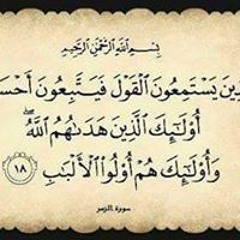 بِسْمِ ٱللَّهِ ٱلرَّحْمَٰنِ ٱلرَّحِيمِ
يَسْتَمِعُونَ ٱلْقَوْلَ فَيَتَّبِعُونَ
أُو۟لَٰٓئِكَ ٱلَّذِينَ هَدَىٰهُمُ ٱللَّهُ ۖ
وَأُو۟لَٰٓئِكَ هُمْ أُو۟لُوا۟ ٱلْأَلْبَٰبِ ١٨
سورة الزمر